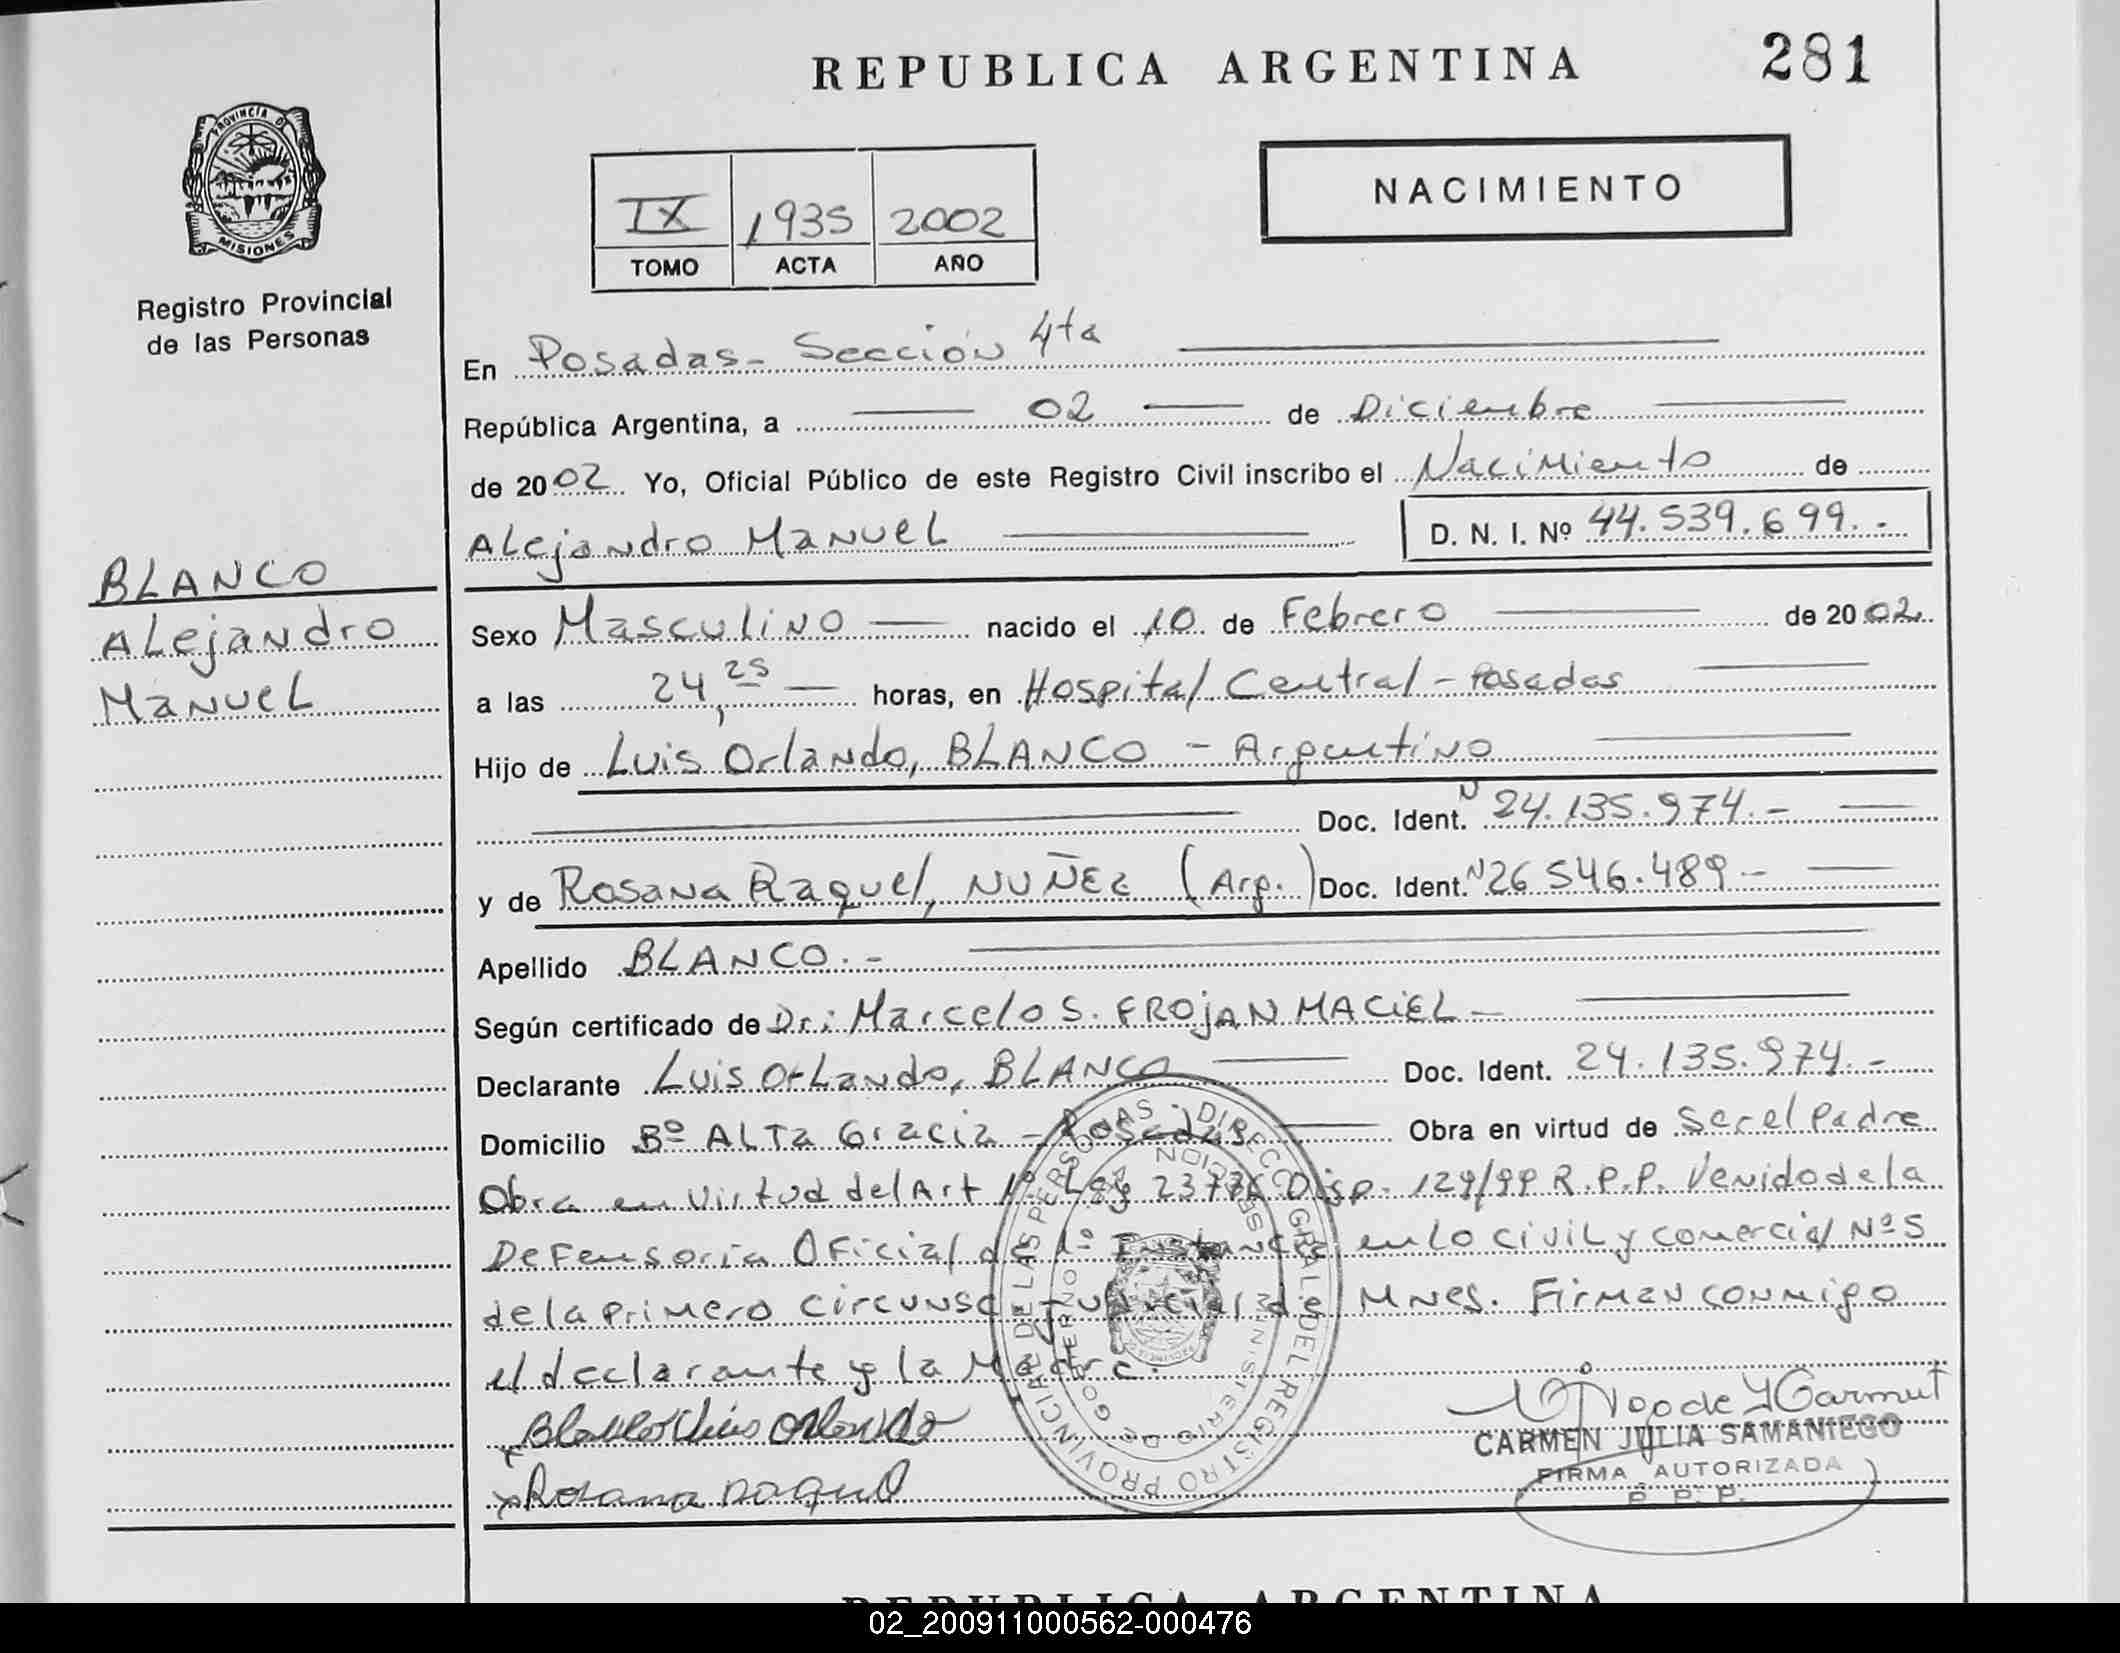 REPUBLICA ARGENTINA
281
PROVINCIA DE MISIONES
Registro Provincial
de las Personas
IX 1935 2002
TOMO ACTA AÑO
NACIMIENTO
En Posadas - Sección 4ta
República Argentina, a 02 de Diciembre
de 2002 Yo, Oficial Público de este Registro Civil inscribo el Nacimiento de
Alejandro Manuel D. N. I. Nº 44.539.699.-
BLANCO
Alejandro
Manuel
Sexo Masculino nacido el 10 de Febrero de 2002
a las 24,25 horas, en Hospital Central - Posadas
Hijo de Luis Orlando, BLANCO - Argentino
Doc. Ident. N 24.135.974.-
y de Rosana Raquel, NUÑEZ (Arg.) Doc. Ident. N 26.546.489-
Apellido BLANCO.-
Según certificado de Dr: Marcelo S. FROJAN MACIEL-
Declarante Luis Orlando, BLANCO Doc. Ident. 24.135.974.-
Domicilio Bº ALTa Gracia - Posadas Obra en virtud de Ser el Padre
Obra en Virtud del Art 1º Ley Disp. 129/99 R.P.P. Venido de la
Defensoria Oficial de 1º Instancia en lo civil y comercial Nº 5
de la primera circunsc Judicial de Mnes. Firman conmigo
el declarante y la Madre.
Blanco Luis Orlando
x Rosana Raquel
DIRECC. GRAL. DEL REGISTRO PROVINCIAL DE LAS PERSONAS
MINISTERIO DE GOBIERNO
CARMEN JULIA SAMANIEGO
FIRMA AUTORIZADA
REPUBLICA ARGENTINA
02_200911000562-000476